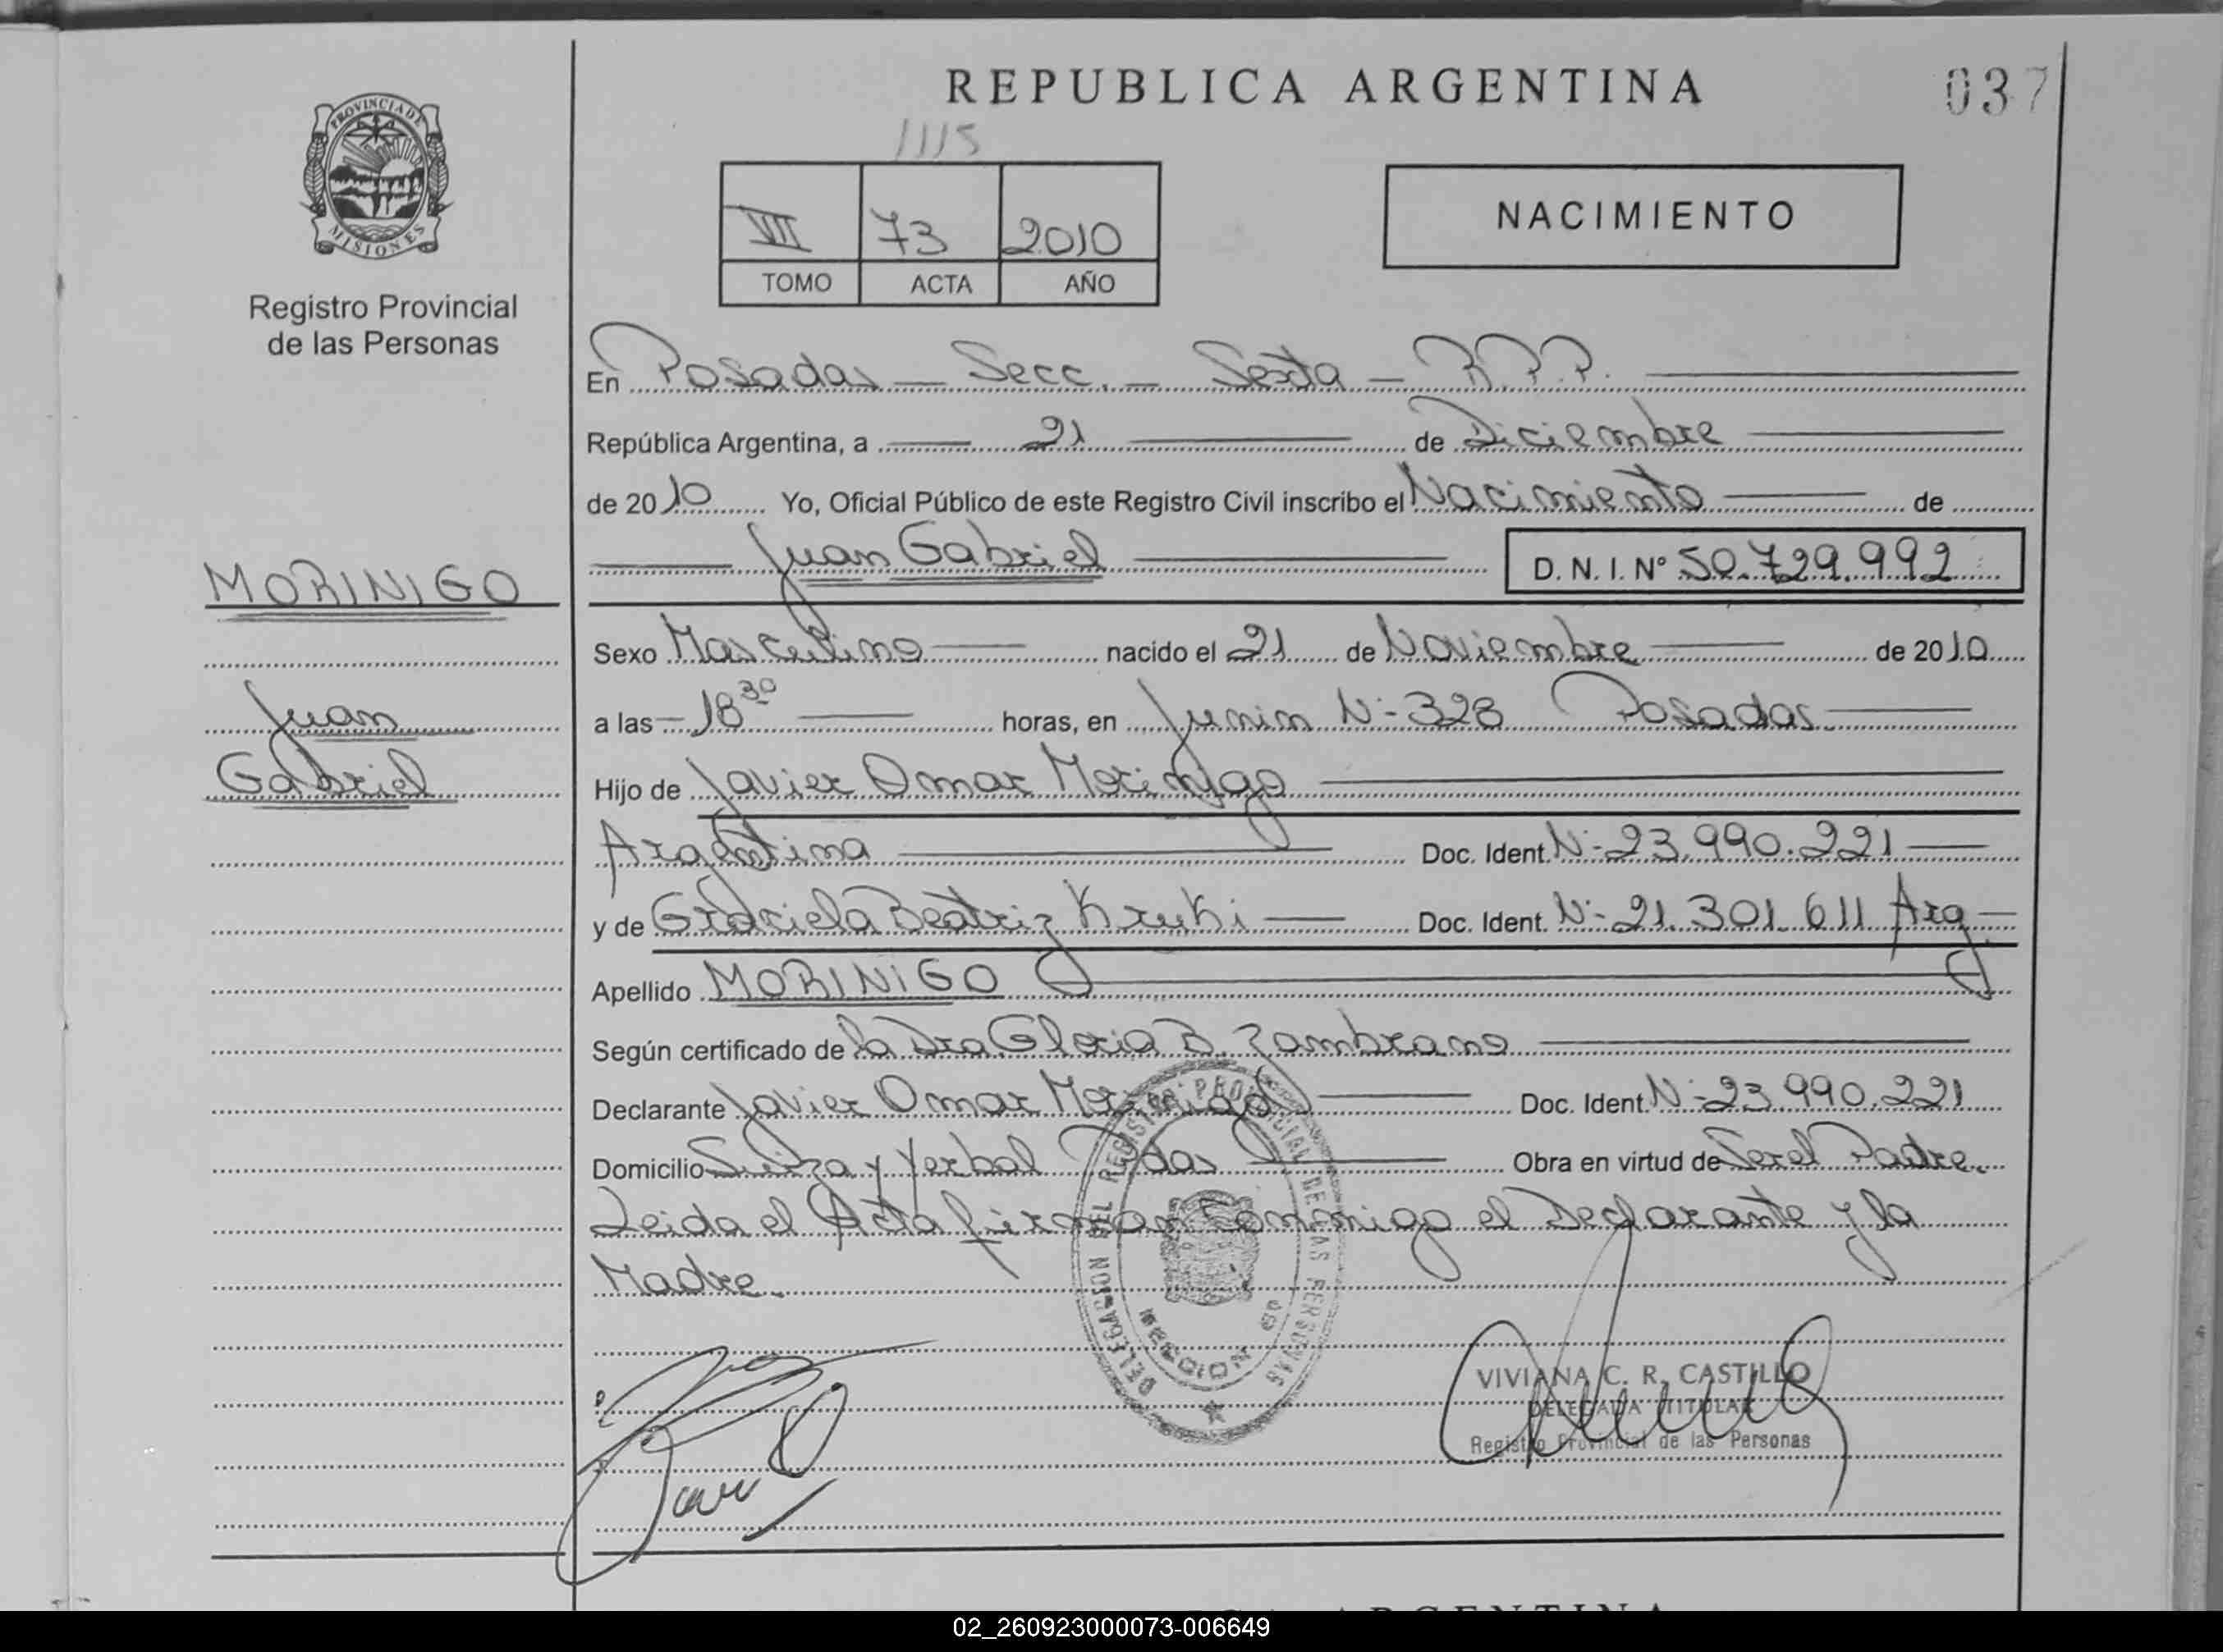 REPUBLICA ARGENTINA
037
1115
PROVINCIA DE
MISIONES
Registro Provincial
de las Personas
VII 73 2010
TOMO ACTA AÑO
NACIMIENTO
En Posadas - Secc. - Sexta - R.P.P.
República Argentina, a 21 de Diciembre
de 2010 Yo, Oficial Público de este Registro Civil inscribo el Nacimiento de
Juan Gabriel D.N.I. Nº 50.729.992
MORINIGO
Juan
Gabriel
Sexo Masculino nacido el 21 de Noviembre de 2010
a las 18 30 horas, en Junin N- 328 Posadas
Hijo de Javier Omar Morinigo
Argentina Doc. Ident. N- 23.990.221
y de Graciela Beatriz Kruki Doc. Ident. N- 21.301.611 Arg
Apellido MORINIGO
Según certificado de la Dra Gloria B. Zambrano
Declarante Javier Omar Morinigo Doc. Ident. N- 23.990.221
Domicilio Suiza y Yerbal Pdas Obra en virtud de Ser el Padre.
Leida el Acta firman Conmigo el Declarante y la
Madre.
DELEGACION DEL REGISTRO PROVINCIAL DE LAS PERSONAS
SECCION 6º
VIVIANA C. R. CASTILLO
DELEGADA TITULAR
Registro Provincial de las Personas
02_260923000073-006649